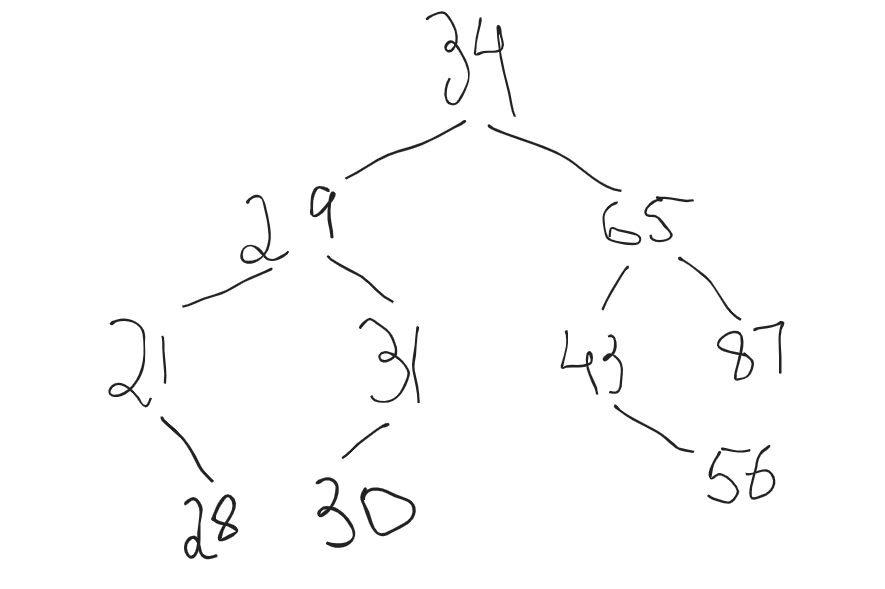 34
29 65
21 31 43 87
28 30 56